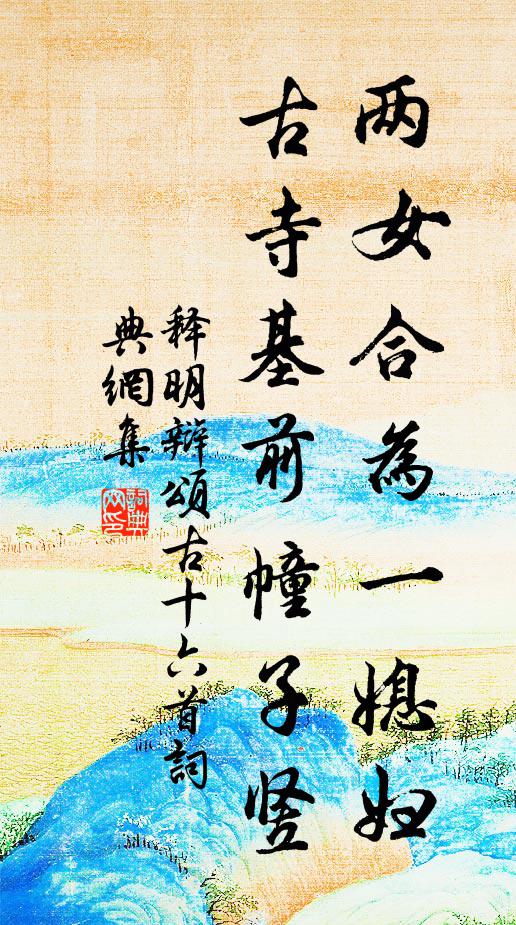 两女合為一媳妇
古寺基前幢子竖
释明辩颂古十六首詞
典網集
詞典
网印